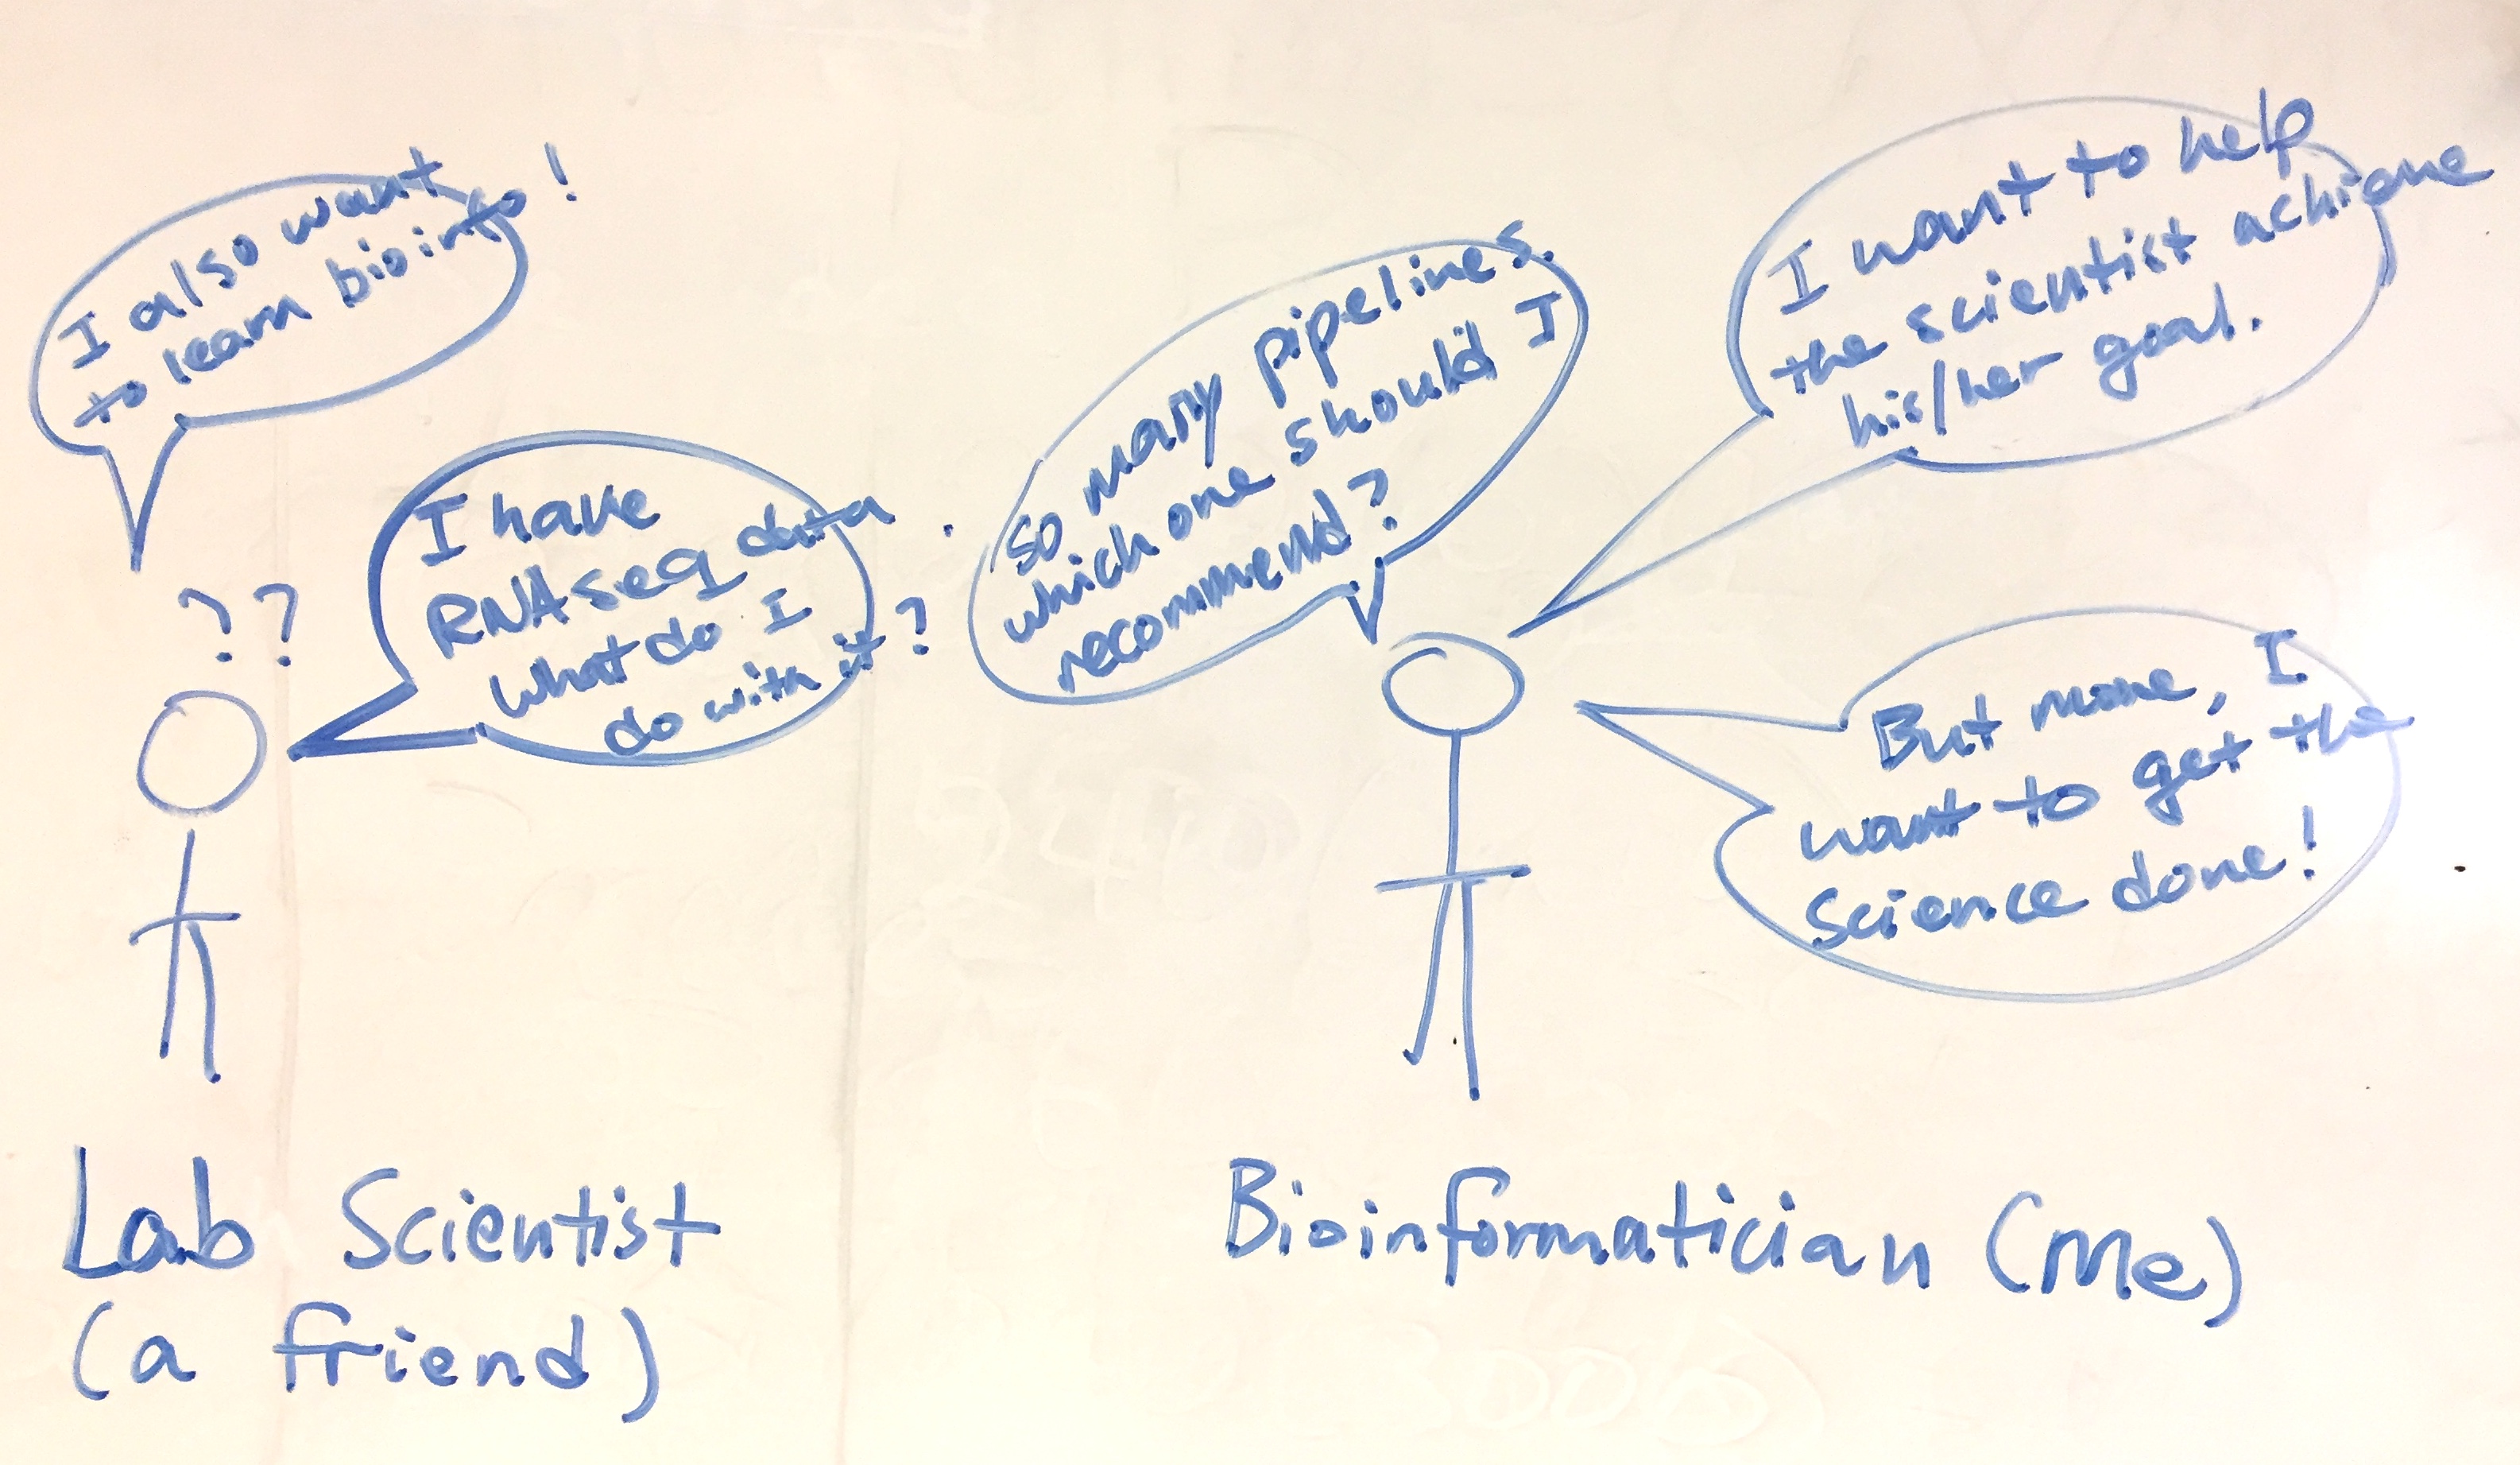 I also want
to learn bioinfo!
??
I have
RNAseq data.
what do I
do with it?
so many pipelines.
which one should I
recommend?
I want to help
the scientist achieve
his/her goal.
But more, I
want to get the
science done!
Lab Scientist
(a friend)
Bioinformatician (Me)